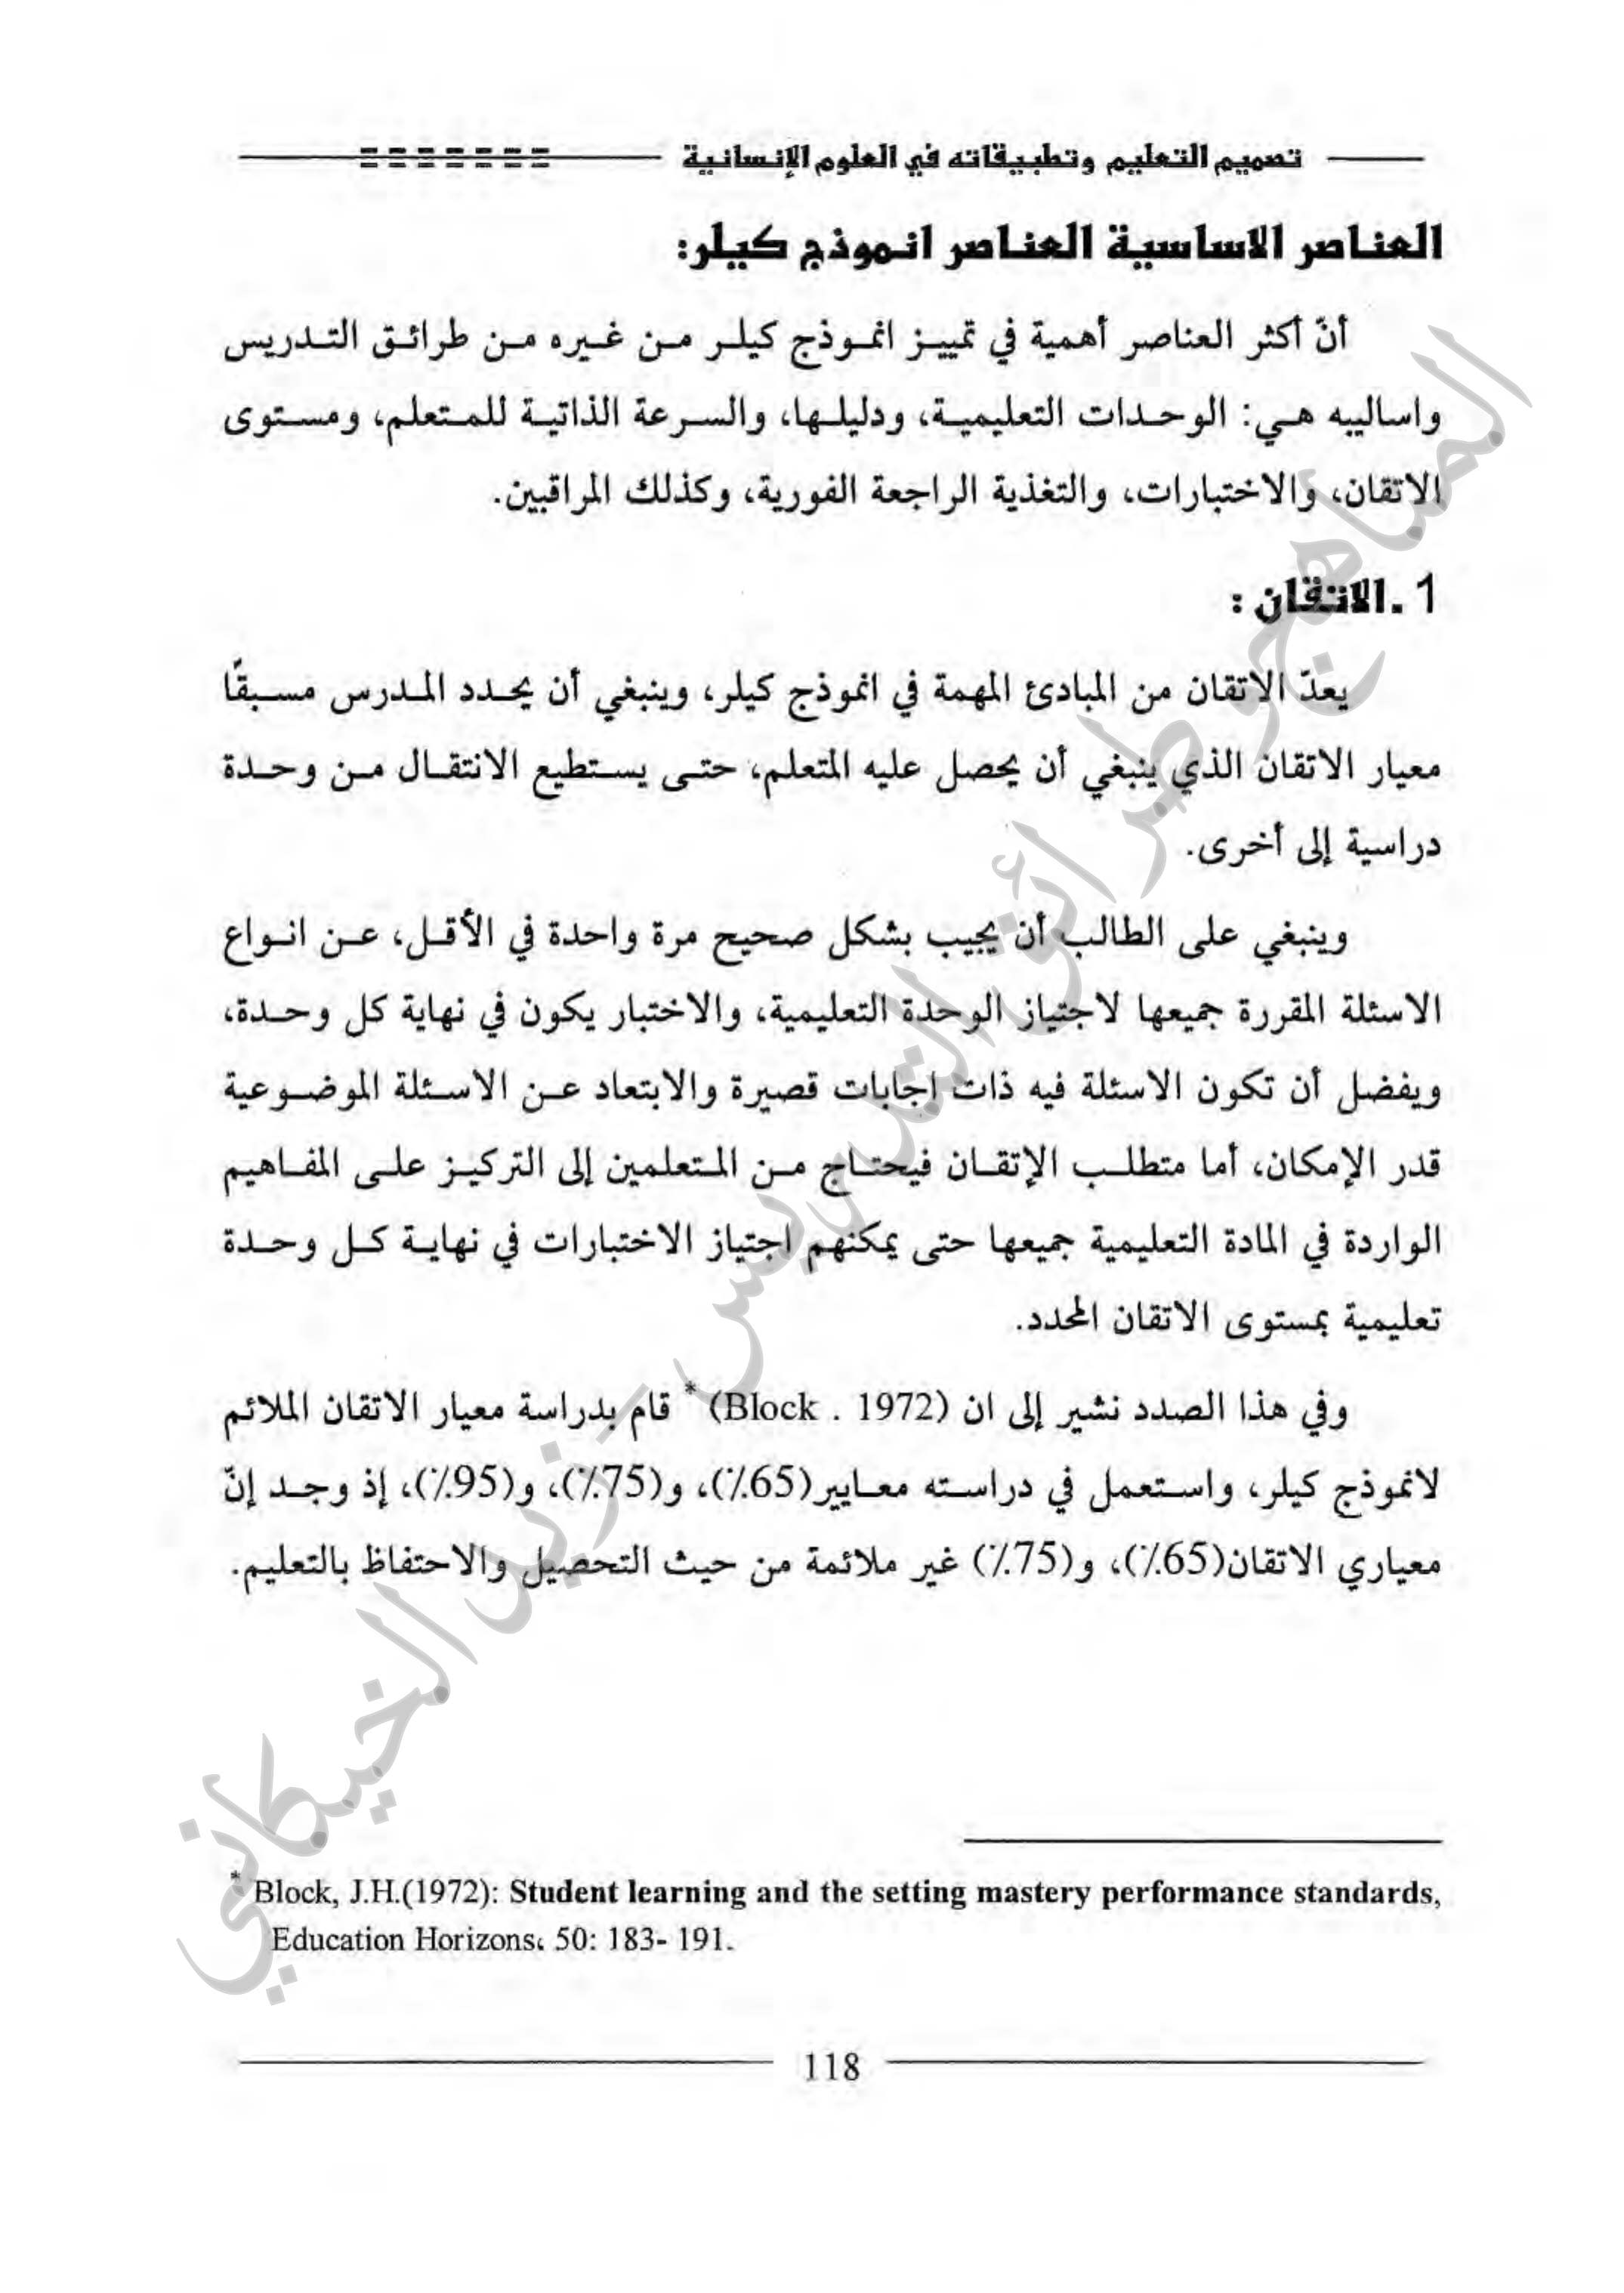 تصميم التعليم وتطبيقاته في العلوم الإنسانية
العناصر الاساسية العناصر انموذج كيلر:
أنّ أكثر العناصر أهمية في تمييز انموذج كيلر من غيره من طرائق التدريس
واساليبه هي: الوحدات التعليمية، ودليلها، والسرعة الذاتية للمتعلم، ومستوى
الاتقان، والاختبارات، والتغذية الراجعة الفورية، وكذلك المراقبين.
1 .الاتقان :
يعدّ الاتقان من المبادئ المهمة في انموذج كيلر، وينبغي أن يحدد المدرس مسبقًا
معيار الاتقان الذي ينبغي أن يحصل عليه المتعلم، حتى يستطيع الانتقال من وحدة
دراسية إلى أخرى.
وينبغي على الطالب أن يجيب بشكل صحيح مرة واحدة في الأقل، عن انواع
الاسئلة المقررة جميعها لاجتياز الوحدة التعليمية، والاختبار يكون في نهاية كل وحدة،
ويفضل أن تكون الاسئلة فيه ذات اجابات قصيرة والابتعاد عن الاسئلة الموضوعية
قدر الإمكان، أما متطلب الإتقان فيحتاج من المتعلمين إلى التركيز على المفاهيم
الواردة في المادة التعليمية جميعها حتى يمكنهم اجتياز الاختبارات في نهاية كل وحدة
تعليمية بمستوى الاتقان المحدد.
وفي هذا الصدد نشير إلى ان (Block . 1972)* قام بدراسة معيار الاتقان الملائم
لانموذج كيلر، واستعمل في دراسته معايير(65٪)، و(75٪)، و(95٪)، إذ وجد إنّ
معياري الاتقان(65٪)، و(75٪) غير ملائمة من حيث التحصيل والاحتفاظ بالتعليم.
* Block, J.H.(1972): Student learning and the setting mastery performance standards,
Education Horizons، 50: 183- 191.
118
المناهج وطرائق التدريس - زيد الخيكاني